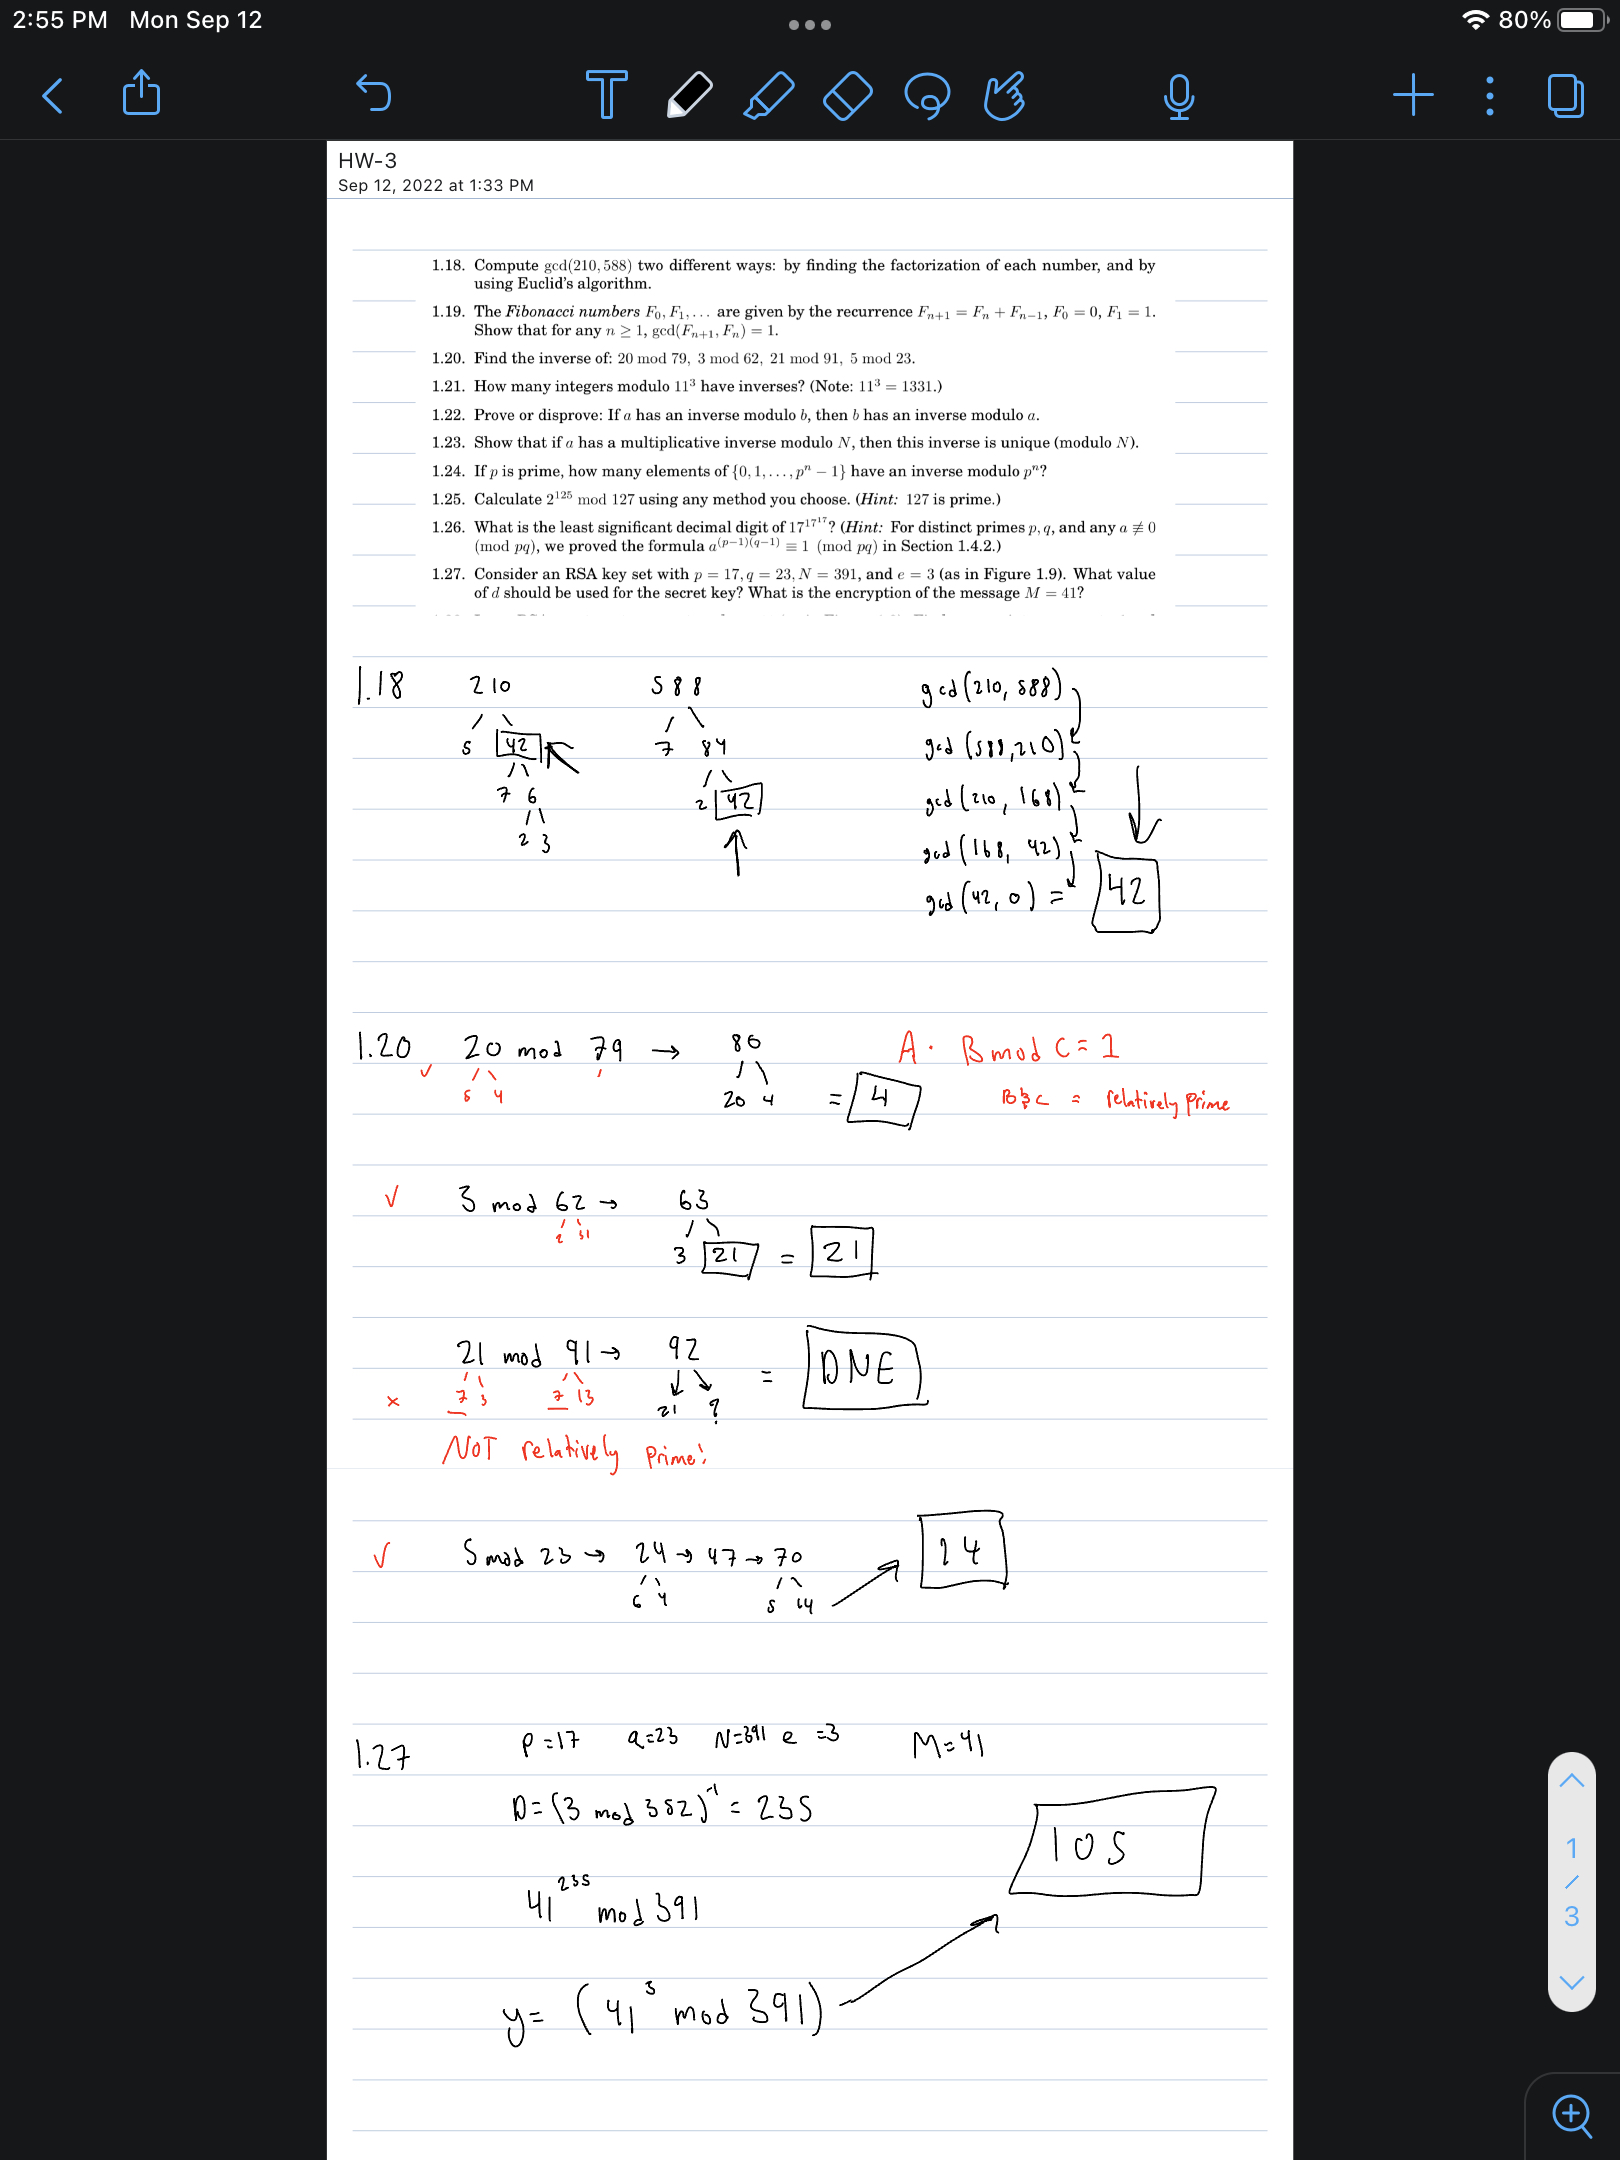 2:55 PM Mon Sep 12
80%
T
HW-3
Sep 12, 2022 at 1:33 PM
1.18. Compute gcd(210, 588) two different ways: by finding the factorization of each number, and by
using Euclid's algorithm.
1.19. The Fibonacci numbers F₀, F₁, ... are given by the recurrence Fₙ₊₁ = Fₙ + Fₙ₋₁, F₀ = 0, F₁ = 1.
Show that for any n ≥ 1, gcd(Fₙ₊₁, Fₙ) = 1.
1.20. Find the inverse of: 20 mod 79, 3 mod 62, 21 mod 91, 5 mod 23.
1.21. How many integers modulo 11³ have inverses? (Note: 11³ = 1331.)
1.22. Prove or disprove: If a has an inverse modulo b, then b has an inverse modulo a.
1.23. Show that if a has a multiplicative inverse modulo N, then this inverse is unique (modulo N).
1.24. If p is prime, how many elements of {0, 1, ..., pⁿ − 1} have an inverse modulo pⁿ?
1.25. Calculate 2¹²⁵ mod 127 using any method you choose. (Hint: 127 is prime.)
1.26. What is the least significant decimal digit of 17^17^17? (Hint: For distinct primes p, q, and any a ≢ 0
(mod pq), we proved the formula a^(p−1)(q−1) ≡ 1 (mod pq) in Section 1.4.2.)
1.27. Consider an RSA key set with p = 17, q = 23, N = 391, and e = 3 (as in Figure 1.9). What value
of d should be used for the secret key? What is the encryption of the message M = 41?
1.18 210 588 gcd(210, 588)
5 42 7 84 gcd(588, 210)
7 6 2 42 gcd(210, 168)
2 3 gcd(168, 42)
gcd(42, 0) = 42
1.20 20 mod 79 → 80 A · B mod C = 1
5 4 20 4 = 4 B & C = relatively prime
3 mod 62 → 63
2 31 3 21 = 21
21 mod 91 → 92 = DNE
7 3 7 13 21 ?
NOT relatively prime!
5 mod 23 → 24 → 47 → 70 14
6 4 5 14
1.27 P = 17 q = 23 N = 391 e = 3 M = 41
D = (3 mod 352)⁻¹ = 235
105
41²³⁵ mod 391
y = (41³ mod 391)
1
/
3